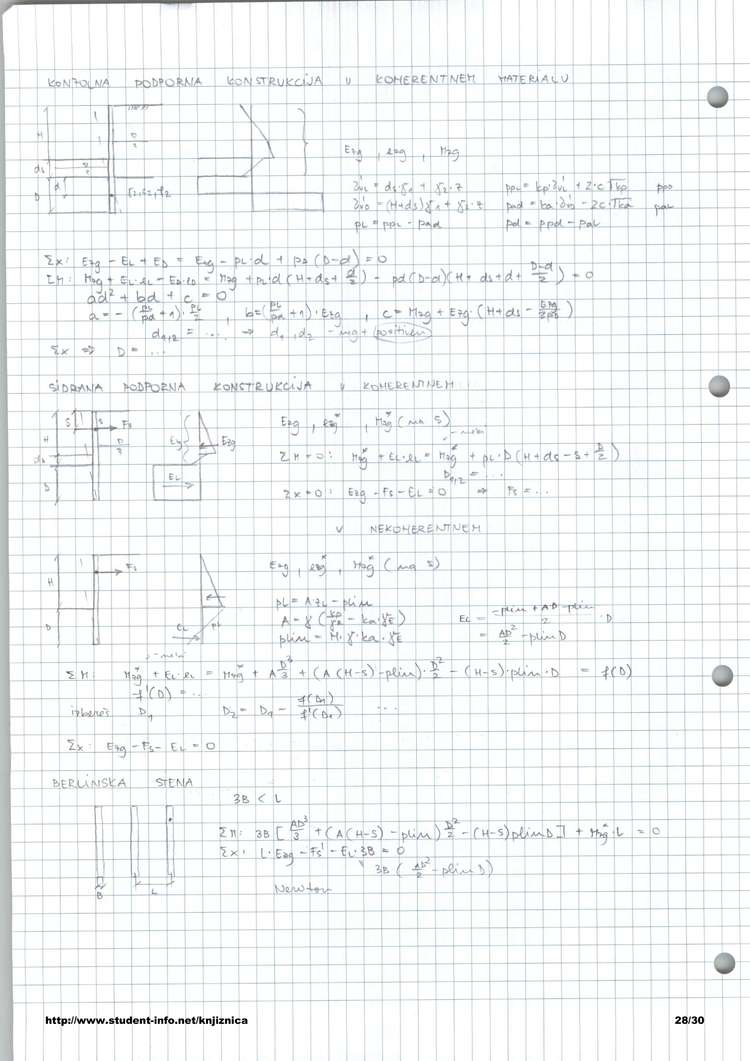 KONZOLNA PODPORNA KONSTRUKCIJA V KOHERENTNEM MATERIALU
H
ds
D
d
Ezg , ezg , Mzg
σ'vL = ds·γ1 + γ2·z    ppL = kp·σ'vL + 2·c·√kp
σ'vD = (H+ds)γ1 + γ2·z    paD = ka·σ'vD - 2c·√ka    paL
pL = ppL - paD    pd = ppd - paL
Σx: Ezg - EL + ED = Ezg - pL·d + pD (D-d) = 0
ΣM: Mzg + EL·rL - ED·rD = Mzg + pL·d (H+ds+ d/2) - pd(D-d)(H+ ds+d+ (D-d)/2) = 0
ad² + bd + c = 0
a = - (pL/pd +1)· pL/2 , b=(pL/pd +1)·Ezg , c = Mzg + Ezg·(H+ds - Ezg/2pD)
d1,2 = ... ⇒ d1, d2
Σx ⇒ D = ...
SIDRANA PODPORNA KONSTRUKCIJA V KOHERENTNEM
S Fs
H Ezg
ds
D EL
Ezg , ezg* , Mzg* (na S)
ΣM=0: Mzg* + EL·rL = Mzg* + pL·D (H+ds-S+ D/2)
D1,2 = ...
Σx=0: Ezg - Fs - EL = 0 ⇒ Fs = ...
V NEKOHERENTNEM
Fs
H
D EL pL
Ezg , ezg* , Mzg* (na S)
pL = A·zL - plim
A = γ (kp/γR - ka·γE)
plim = H·γ·ka·γE
EL = (-plim + AD - plim)/2 · D
= AD²/2 - plim D
ΣM: Mzg* + EL·rL = Mzg* + A D³/3 + (A (H-S) - plim)· D²/2 - (H-S)·plim·D = f(D)
f'(D) = ...
izbereš D1 D2 = D1 - f(D1)/f'(D1) ...
Σx: Ezg - Fs - EL = 0
BERLINSKA STENA
3B < L
B L
ΣM: 3B [ AD³/3 + (A(H-S) - plim) D²/2 - (H-S)plim D ] + Mzg*·L = 0
Σx: L·Ezg - Fs' - EL·3B = 0
3B ( AD²/2 - plim D)
Newton
http://www.student-info.net/knjiznica 28/30